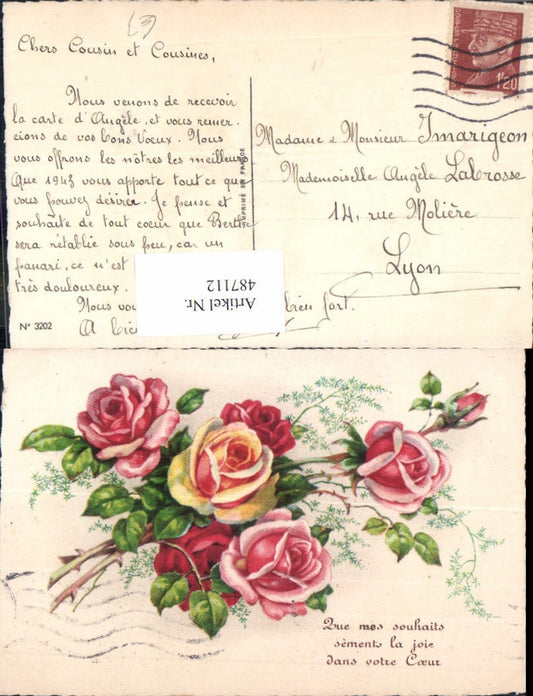 Chers Cousin et Cousines,
Nous venons de recevoir
la carte d'Angèle, et vous remer
cions de vos bons vœux. Nous
vous offrons les nôtres les meilleurs
Que 1943 vous apporte tout ce que
vous pouvez désirer. Je pense et
souhaite de tout cœur que Berthe
sera rétablie sous peu, car un
panari, ce n'est
très douloureux.
Nous vou bien fort.
A bien
N° 3202
IMPRIMÉ EN FRANCE
1f20
Madame & Monsieur Imarigeon
Mademoiselle Angèle Labrosse
14, rue Molière
Lyon
Artikel Nr.
487112
Que mes souhaits
sèment la joie
dans votre Cœur